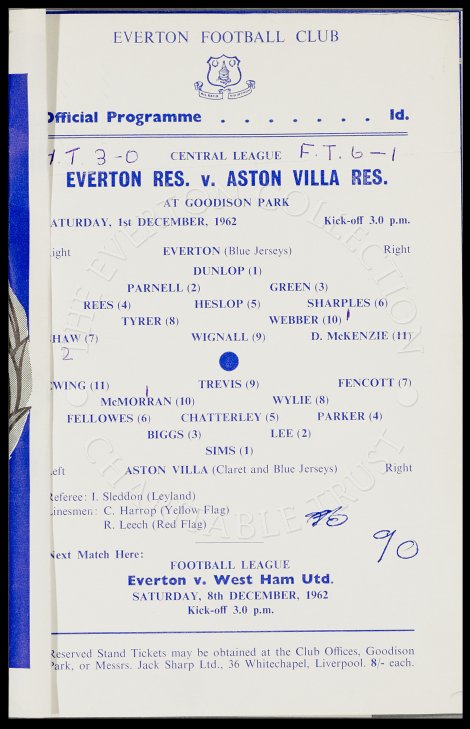 EVERTON FOOTBALL CLUB
Official Programme . . . . . . . 1d.
H.T. 3-0 CENTRAL LEAGUE F.T. 6-1
EVERTON RES. v. ASTON VILLA RES.
AT GOODISON PARK
SATURDAY, 1st DECEMBER, 1962 Kick-off 3.0 p.m.
Right EVERTON (Blue Jerseys) Right
DUNLOP (1)
PARNELL (2) GREEN (3)
REES (4) HESLOP (5) SHARPLES (6)
TYRER (8) WEBBER (10) 1
SHAW (7) WIGNALL (9) D. McKENZIE (11)
2
EWING (11) TREVIS (9) FENCOTT (7)
1
McMORRAN (10) WYLIE (8)
FELLOWES (6) CHATTERLEY (5) PARKER (4)
BIGGS (3) LEE (2)
SIMS (1)
Left ASTON VILLA (Claret and Blue Jerseys) Right
Referee: I. Sleddon (Leyland)
Linesmen: C. Harrop (Yellow Flag)
R. Leech (Red Flag)
90
Next Match Here:
FOOTBALL LEAGUE
Everton v. West Ham Utd.
SATURDAY, 8th DECEMBER, 1962
Kick-off 3.0 p.m.
Reserved Stand Tickets may be obtained at the Club Offices, Goodison
Park, or Messrs. Jack Sharp Ltd., 36 Whitechapel, Liverpool. 8/- each.
THE EVERTON COLLECTION
CHARITABLE TRUST